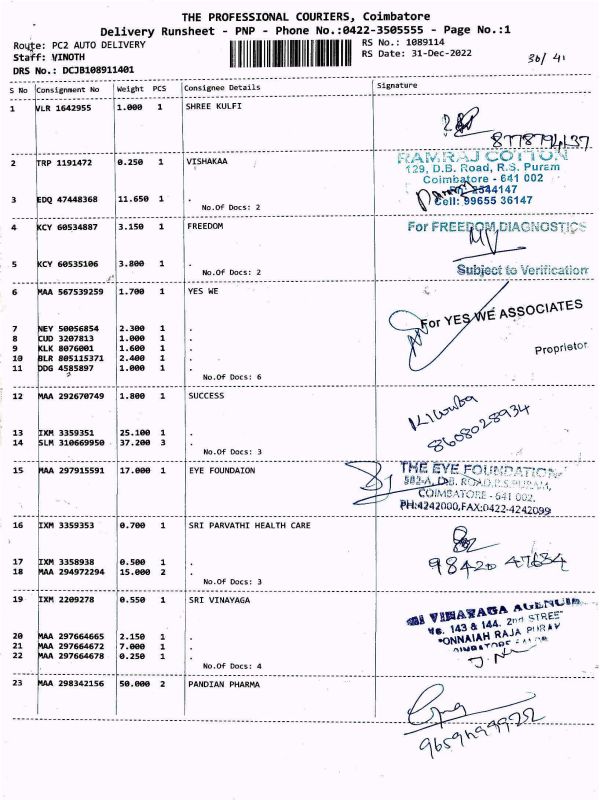 THE PROFESSIONAL COURIERS, Coimbatore
Delivery Runsheet - PNP - Phone No.:0422-3505555 - Page No.:1
Route: PC2 AUTO DELIVERY
RS No.: 1089114
Staff: VINOTH
RS Date: 31-Dec-2022
30/ 41
DRS No.: DCJB108911401
S No Consignment No Weight PCS Consignee Details Signature
1 VLR 1642955 1.000 1 SHREE KULFI
8778794137
2 TRP 1191472 0.250 1 VISHAKAA
RAMRAJ COTTON
129, D.B. Road, R.S. Puram
Coimbatore - 641 002
2544147
Cell: 99655 36147
3 EDQ 47448368 11.650 1 .
No.Of Docs: 2
4 KCY 60534887 3.150 1 FREEDOM
For FREEDOM DIAGNOSTICS
5 KCY 60535106 3.800 1 .
No.Of Docs: 2
Subject to Verification
6 MAA 567539259 1.700 1 YES WE
For YES WE ASSOCIATES
Proprietor
7 NEY 50056854 2.300 1 .
8 CUD 3207813 1.000 1 .
9 KLK 8076001 1.600 1 .
10 BLR 805115371 2.400 1 .
11 DDG 4585897 1.000 1 .
No.Of Docs: 6
12 MAA 292670749 1.800 1 SUCCESS
8608028934
13 IXM 3359351 25.100 1 .
14 SLM 310669950 37.200 3 .
No.Of Docs: 3
15 MAA 297915591 17.000 1 EYE FOUNDAION
THE EYE FOUNDATION
582-A, D.B. ROAD,R.S.PURAM,
COIMBATORE - 641 002.
PH:4242000,FAX:0422-4242099
16 IXM 3359353 0.700 1 SRI PARVATHI HEALTH CARE
98420 47634
17 IXM 3358938 0.500 1 .
18 MAA 294972294 15.000 2 .
No.Of Docs: 3
19 IXM 2209278 0.550 1 SRI VINAYAGA
VINAYAGA AGENCIE
143 & 144, 2nd STREE
PONNAIAH RAJA PURAM
20 MAA 297664665 2.150 1 .
21 MAA 297664672 7.000 1 .
22 MAA 297664678 0.250 1 .
No.Of Docs: 4
23 MAA 298342156 50.000 2 PANDIAN PHARMA